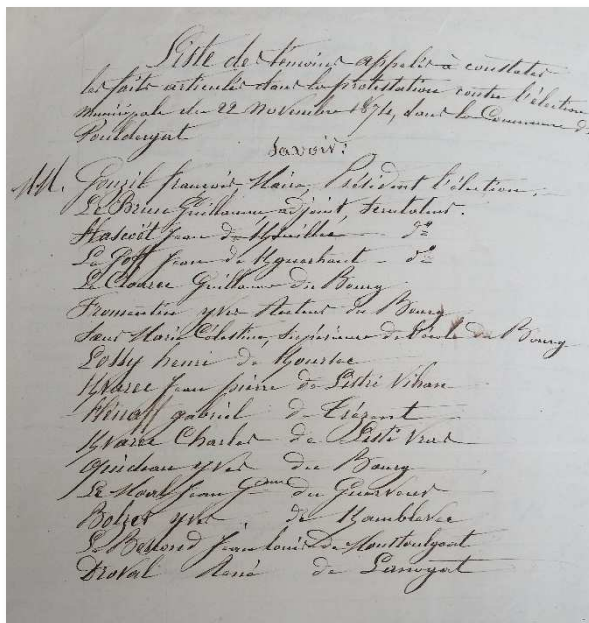 Liste des témoins appelés à constater
les faits articulés dans la protestation contre l'élection
municipale du 22 Novembre 1874, dans la Commune de
Pouldergat
Savoir:
MM. Gouzil françois, Maire, Président l'élection.
Le Brusc Guillaume adjoint, Scrutateur.
Hascoët Jean de d°
Le Goff Jean de Kguerhant - d°
Le Guillaume du Bourg
Fromentin yves Recteur du Bourg
Sœur Marie Célestine, Supérieure de l'école du Bourg
Lossy henri de
Kvarec Jean pierre de Lestré Vihan
Hénaff gabriel de Trésent
Kvarec Charles de Lestré Vras
yves du Bourg
Le Moal Jean Gme du Guerveur
Bolzer yves de
Le Berrond Jean Louis De
Droval René de Lanogat